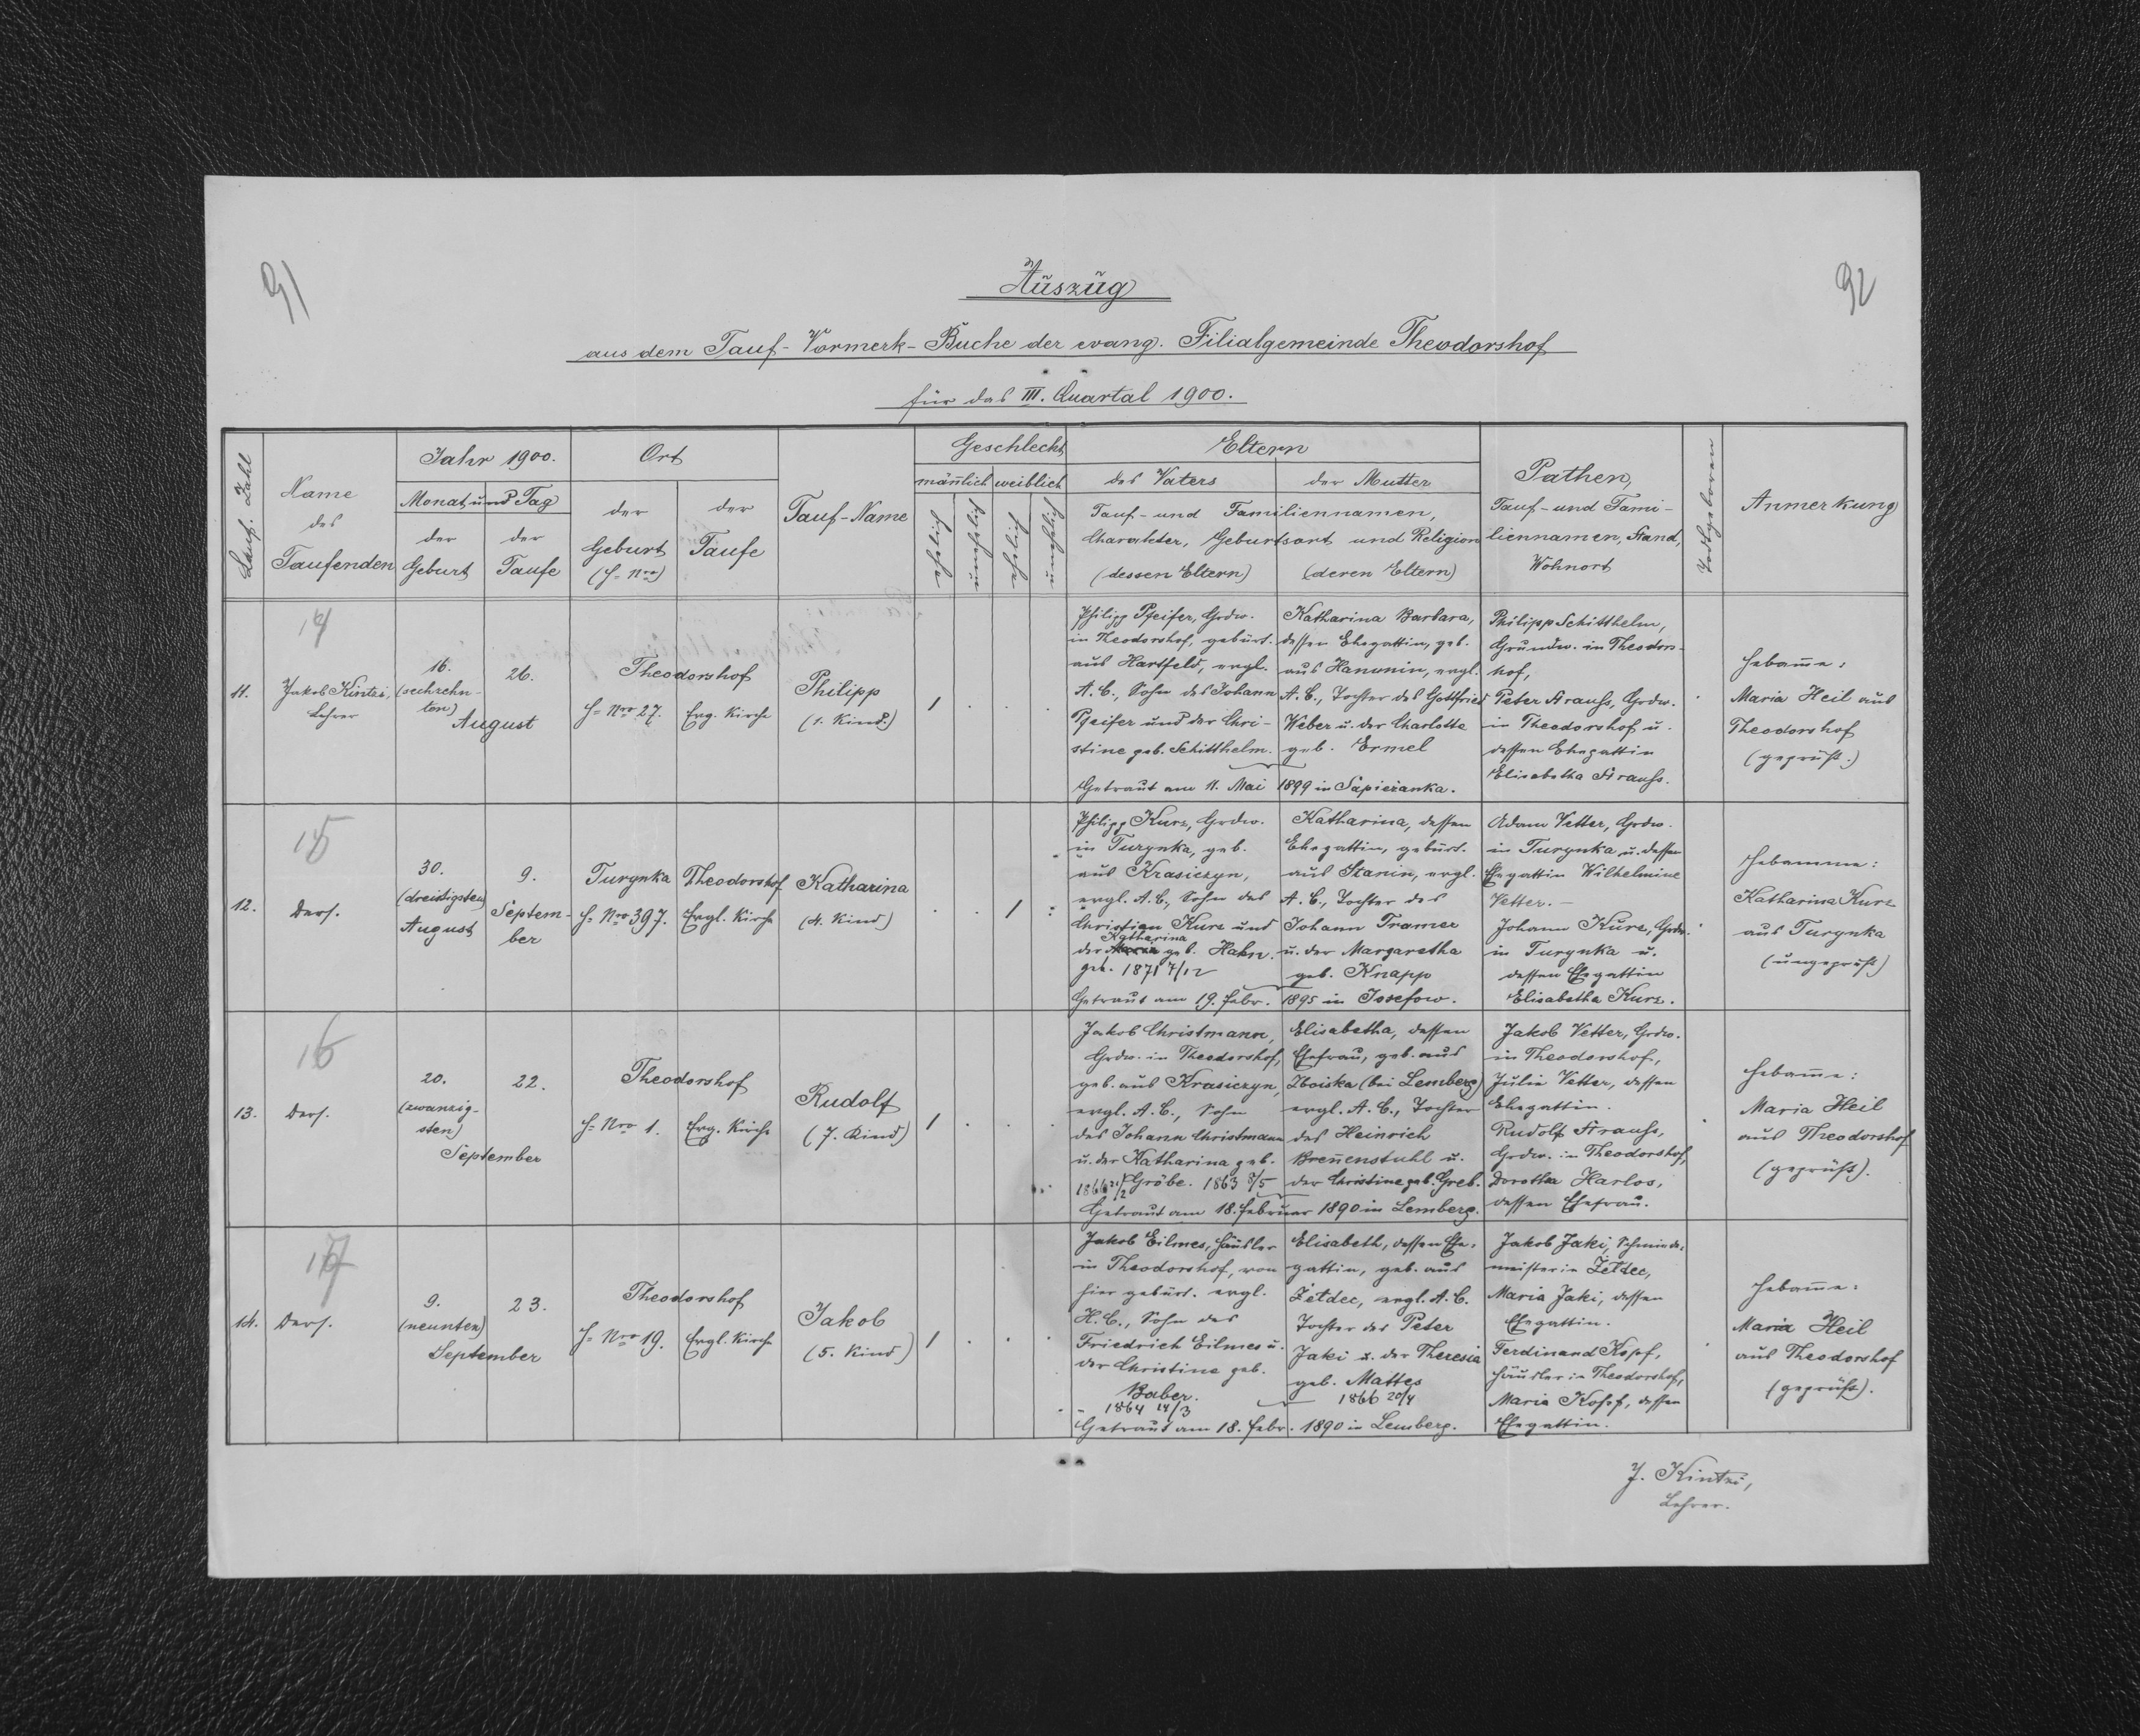 91
92
Auszug
aus dem Tauf-Vormerk-Buche der evang. Filialgemeinde Theodorshof
für das III. Quartal 1900.
Lauf. Zahl
Name
des
Taufenden
Jahr 1900.
Monat und Tag
der
Geburt
der
Taufe
Ort
der
Geburt
(H= Nro)
der
Taufe
Tauf-Name
Geschlecht
männlich weiblich
ehelich
unehelich
ehelich
unehelich
Eltern
des Vaters
der Mutter
Tauf- und Familiennamen,
Charakter, Geburtsort und Religion
(dessen Eltern)
(deren Eltern)
Pathen,
Tauf- und Fami-
liennamen, Stand,
Wohnort
Todtgeboren
Anmerkung
14
11.
Jakob Kintzi,
Lehrer
16.
(sechzehn-
ten)
26.
August
Theodorshof
H= Nro 27.
Evg. Kirche
Philipp
(1. Kind.)
1
Philipp Pfeifer, Grdw.
in Theodorshof, gebürt.
aus Hartfeld, evgl.
A. C., Sohn des Johann
Pfeifer und der Chri-
stine geb. Schitthelm.
Katharina Barbara,
dessen Ehegattin, geb.
aus Hanunin, evgl.
A. C., Tochter des Gottfried
Weber u. der Charlotte
geb. Ermel
Getraut am 11. Mai 1899 in Sapieżanka.
Philipp Schitthelm,
Grundw. in Theodors-
hof,
Peter Strauß, Grdw.
in Theodorshof u.
dessen Ehegattin
Elisabetha Strauß.
Hebam̄e:
Maria Heil aus
Theodorshof
(geprüft.)
15
12.
Ders.
30.
(dreißigsten)
August
9.
Septem-
ber
Turynka
H= Nro 397.
Theodorshof
Evgl. Kirche
Katharina
(4. Kind)
1
Philipp Kurz, Grdw.
in Turynka, geb.
aus Krasiczyn,
evgl. A. C., Sohn des
Christian Kurz und
Katharina
der geb. Hahn.
geb. 1871 7/12
Katharina, dessen
Ehegattin, gebürt.
aus Stanin, evgl.
A. C., Tochter des
Johann Tramer
u. der Margaretha
geb. Knapp
Getraut am 19. Febr. 1895 in Josefow.
Adam Vetter, Grdw.
in Turynka u. dessen
Ehegattin Wilhelmine
Vetter. –
Johann Kurz, Grdw.
in Turynka u.
dessen Ehegattin
Elisabetha Kurz.
Hebamme:
Katharina Kurz
aus Turynka
(ungeprüft)
16
13.
Ders.
20.
(zwanzig-
sten)
22.
September
Theodorshof
H= Nro 1.
Evg. Kirche
Rudolf
(7. Kind)
1
Jakob Christmann,
Grdw. in Theodorshof,
geb. aus Krasiczyn,
evgl. A. C., Sohn
des Johann Christmann
u. der Katharina geb.
Gröbe. 1863 8/5
Elisabetha, dessen
Ehefrau, geb. aus
Zboiska (bei Lemberg)
evgl. A. C., Tochter
des Heinrich
Bren̄enstuhl u.
der Christine geb. Greb.
Getraut am 18. Februar 1890 in Lemberg.
Jakob Vetter, Grdw.
in Theodorshof,
Julia Vetter, dessen
Ehegattin.
Rudolf Strauß,
Grdw. in Theodorshof,
Dorothea Harlos,
dessen Ehefrau.
Hebam̄e:
Maria Heil
aus Theodorshof
(geprüft).
17
14.
Ders.
9.
(neunten)
23.
September
Theodorshof
H= Nro 19.
Evgl. Kirche
Jakob
(5. Kind)
1
Jakob Eilmes, Häusler
in Theodorshof, von
hier gebürt. evgl.
H. C., Sohn des
Friedrich Eilmes u.
der Christine geb.
Baber.
1864 14/3
Elisabeth, dessen Ehe-
gattin, geb. aus
Żełdec, evgl. A. C.
Tochter des Peter
Jaki u. der Theresia
geb. Mattes
1866 20/4
Getraut am 18. Febr. 1890 in Lemberg.
Jakob Jaki, Schmiede-
meister in Żełdec,
Maria Jaki, dessen
Ehegattin.
Ferdinand Kopf,
Häusler in Theodorshof,
Maria Kopf, dessen
Ehegattin.
Hebam̄e:
Maria Heil
aus Theodorshof
(geprüft).
J. Kintzi,
Lehrer.